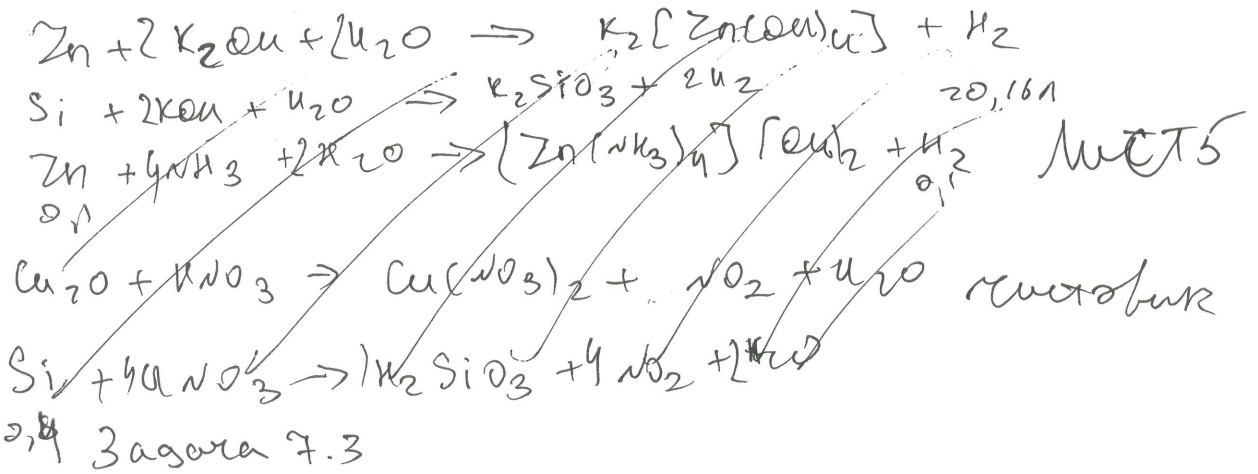 Zn + 2 K2OH + 2H2O → K2[Zn(OH)4] + H2
Si + 2KOH + H2O → K2SiO3 + 2H2
20,16л
Zn + 4NH3 + 2H2O → [Zn(NH3)4](OH)2 + H2
0,1
0,1
Лист 5
Cu2O + HNO3 → Cu(NO3)2 + NO2 + H2O
чистовик
Si + 4HNO3 → H2SiO3 + 4NO2 +
0,4
Задача 7.3